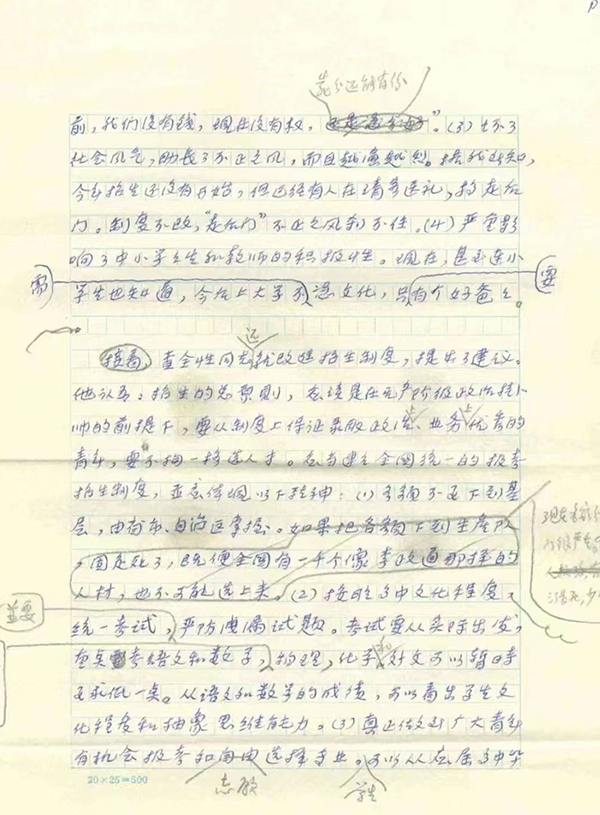 P
靠个还能有你
前，我们没有钱，现在没有权，还是”。(3)坏了
社会风气，助长了不正之风，而且越演越烈。据我所知，
今年招生还没有开始，但已经有人在请客送礼，找走后
门。制度不改，“走后门”不正之风刹不住。(4)严重影
响了中小学学生和教师的积极性。现在，甚至连小
需 学生也知道，今后上大学不凭文化，只有个好爸爸。 要
还
接着，查全性同志就改进招生制度，提出了建议。
他认为：招生的总原则，应该是在无产阶级政治挂
帅的前提下，要从制度上保证录取政治上、业务上优秀的
青年，要不拘一格选人才。应当建立全国统一的报考
招生制度，并应体现以下精神：(1)名额不要下到基
层，由省市、自治区掌握。如果把名额下到生产队
，固定死了，既便全国有一千个像李政道那样的
人材，也不可能选上来。(2)按照高中文化程度，
并要
统一考试，严防泄漏试题。考试要从实际出发，
重点考语文和数学，物理，化学和外文可以暂时
要求低一点。从语文和数学的成绩，可以看出学生文
化程度和抽象思维能力。(3)真正做到广大青年
有机会报考和自由选择专业。可以从应届高中毕
志愿 学生
20×25=500